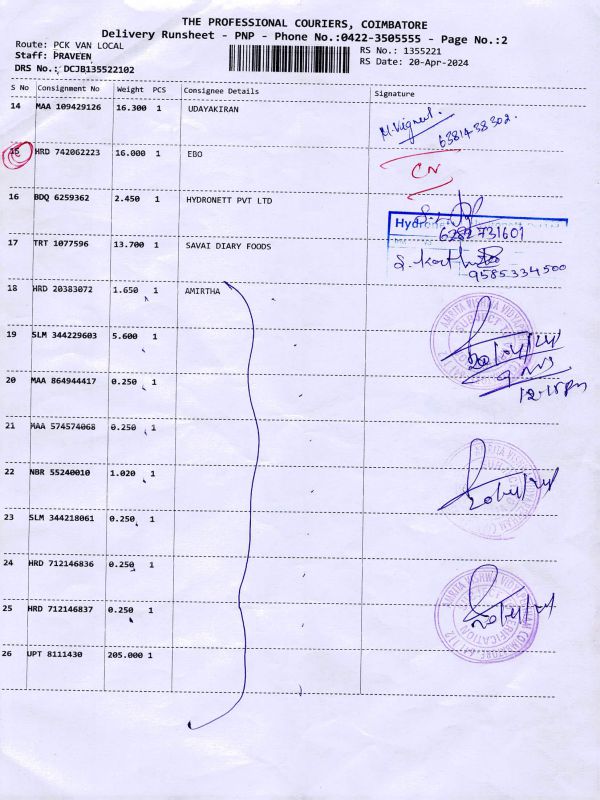 THE PROFESSIONAL COURIERS, COIMBATORE
Delivery Runsheet - PNP - Phone No.:0422-3505555 - Page No.:2
Route: PCK VAN LOCAL
RS No.: 1355221
Staff: PRAVEEN
RS Date: 20-Apr-2024
DRS No.: DCJB135522102
S No Consignment No Weight PCS Consignee Details Signature
14 MAA 109429126 16.300 1 UDAYAKIRAN
M.Vignesh.
6381438302.
15 HRD 742062223 16.000 1 EBO
CN
16 BDQ 6259362 2.450 1 HYDRONETT PVT LTD
6282731601
17 TRT 1077596 13.700 1 SAVAI DIARY FOODS
S. Karthik
9585334500
18 HRD 20383072 1.650 1 AMIRTHA
19 SLM 344229603 5.600 1
20/04/24
12.15pm
20 MAA 864944417 0.250 1
21 MAA 574574068 0.250 1
22 NBR 55240010 1.020 1
20/04/24
23 SLM 344218061 0.250 1
24 HRD 712146836 0.250 1
25 HRD 712146837 0.250 1
20/04/24
26 UPT 8111430 205.000 1